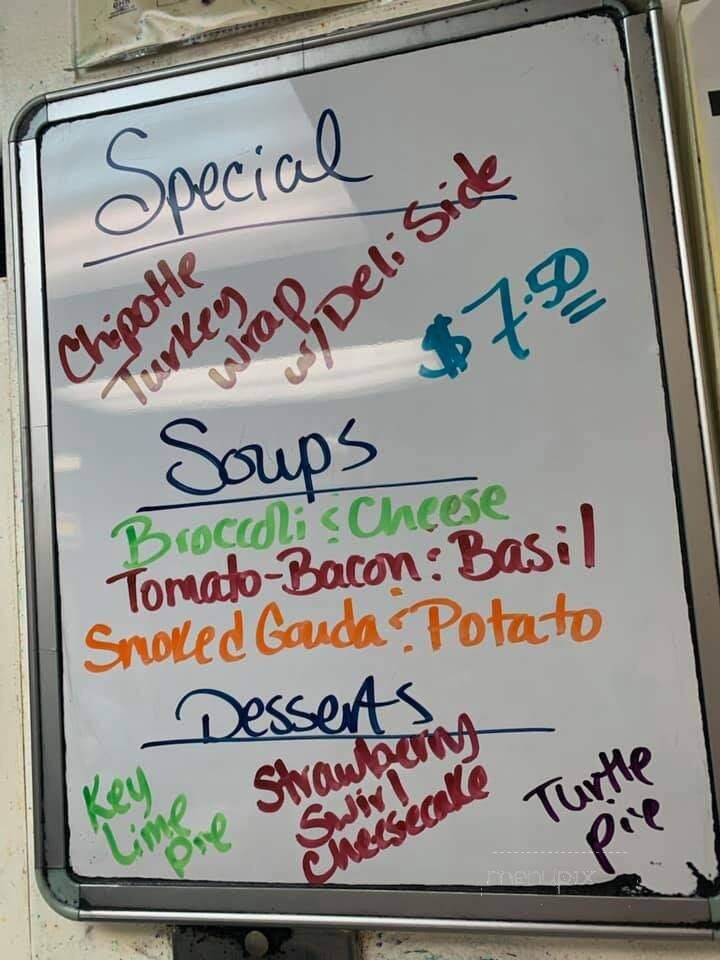 Special
Chipotle
Turkey
Wrap
w/ Deli Side
$7.50
Soups
Broccoli & Cheese
Tomato-Bacon & Basil
Smoked Gouda & Potato
Desserts
Key
Lime
Pie
Strawberry
Swirl
Cheesecake
Turtle
Pie
menupix